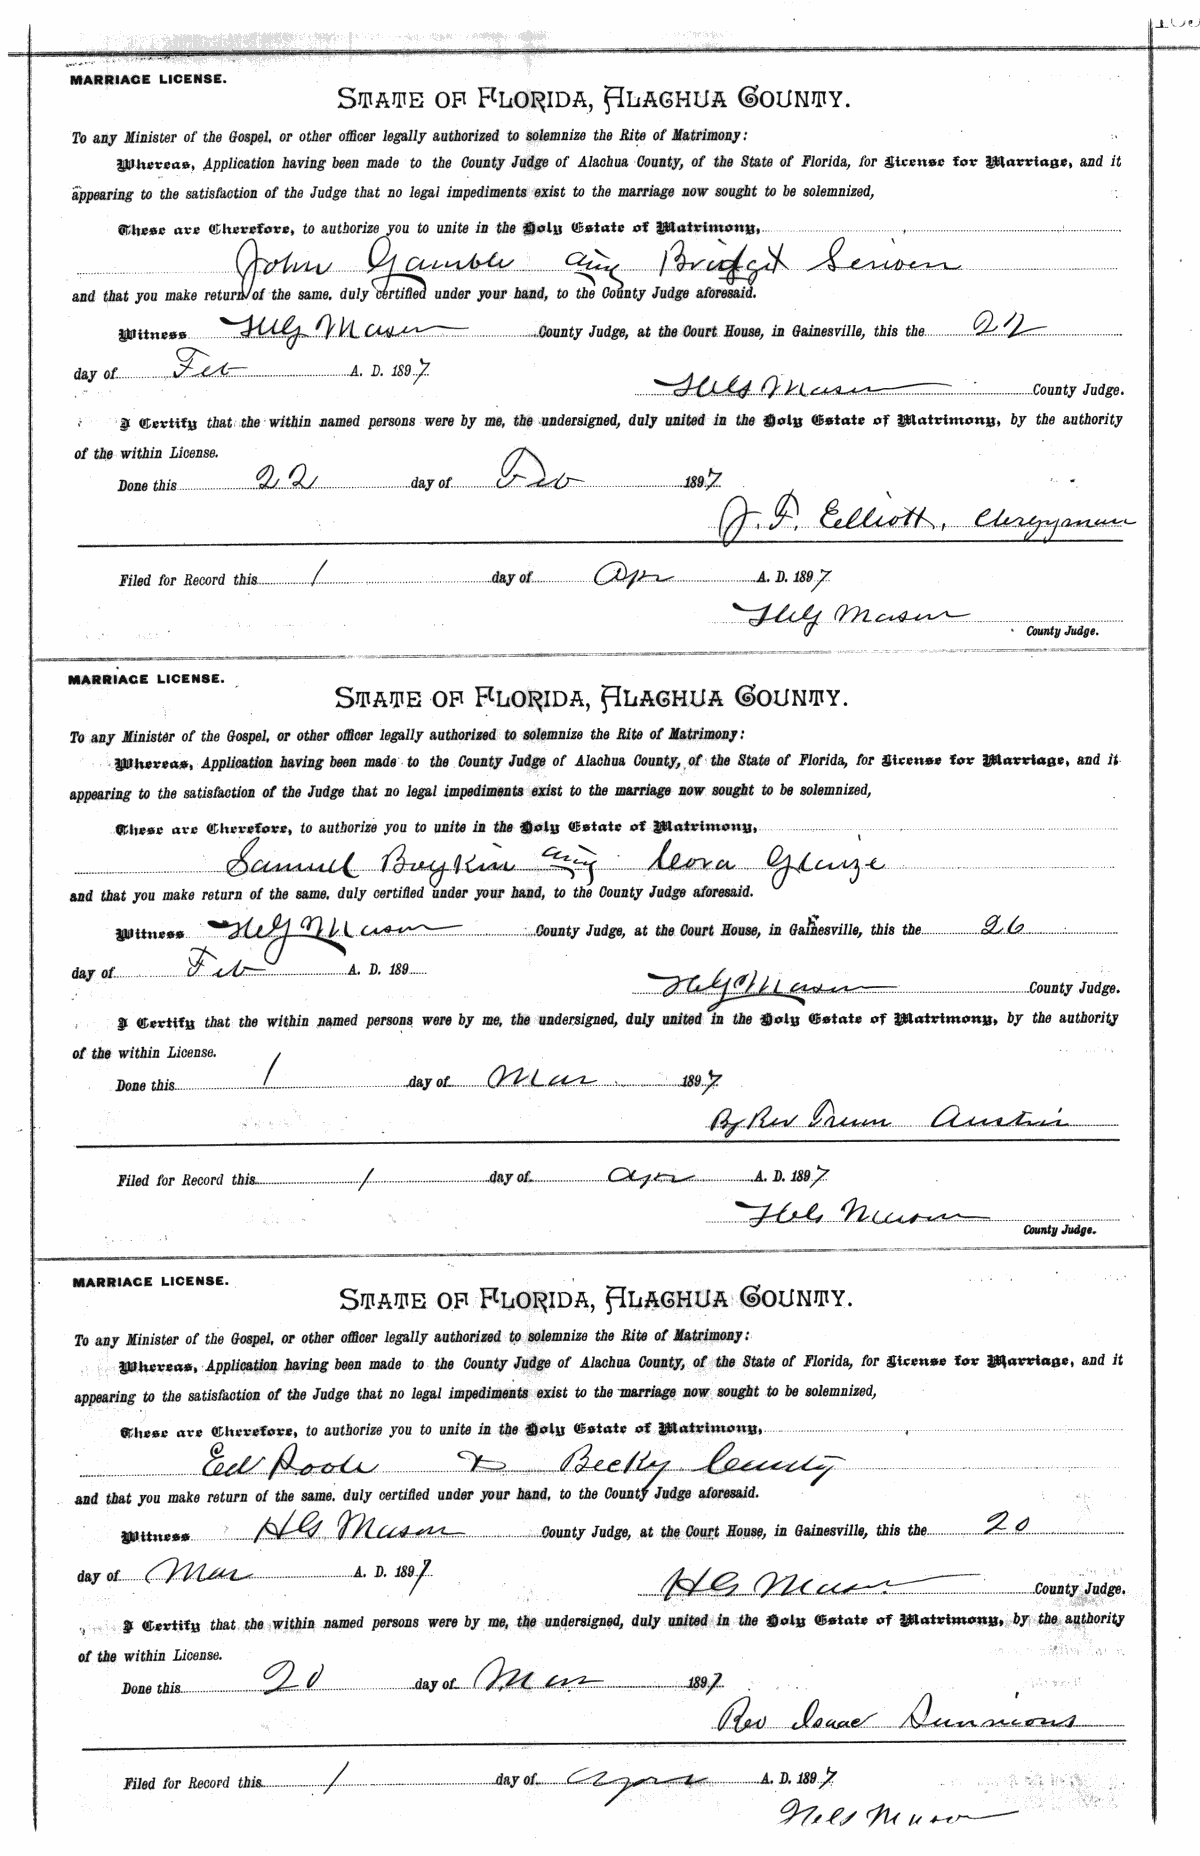 MARRIAGE LICENSE.
STATE OF FLORIDA, ALACHUA COUNTY.
To any Minister of the Gospel, or other officer legally authorized to solemnize the Rite of Matrimony:
Whereas, Application having been made to the County Judge of Alachua County, of the State of Florida, for License for Marriage, and it
appearing to the satisfaction of the Judge that no legal impediments exist to the marriage now sought to be solemnized,
These are Therefore, to authorize you to unite in the Holy Estate of Matrimony,
John Gamble and Bridget
and that you make return of the same, duly certified under your hand, to the County Judge aforesaid.
Witness HG Mason County Judge, at the Court House, in Gainesville, this the 22
day of Feb A. D. 1897
HG Mason County Judge.
I Certify that the within named persons were by me, the undersigned, duly united in the Holy Estate of Matrimony, by the authority
of the within License.
Done this 22 day of Feb 1897
J. F. Elliott, Clergyman
Filed for Record this 1 day of Apr A. D. 1897
HG Mason
County Judge.
MARRIAGE LICENSE.
STATE OF FLORIDA, ALACHUA COUNTY.
To any Minister of the Gospel, or other officer legally authorized to solemnize the Rite of Matrimony:
Whereas, Application having been made to the County Judge of Alachua County, of the State of Florida, for License for Marriage, and it
appearing to the satisfaction of the Judge that no legal impediments exist to the marriage now sought to be solemnized,
These are Therefore, to authorize you to unite in the Holy Estate of Matrimony,
Samuel Boykin and Cora Glenze
and that you make return of the same, duly certified under your hand, to the County Judge aforesaid.
Witness HG Mason County Judge, at the Court House, in Gainesville, this the 26
day of Feb A. D. 189
HG Mason County Judge.
I Certify that the within named persons were by me, the undersigned, duly united in the Holy Estate of Matrimony, by the authority
of the within License.
Done this 1 day of Mar 1897
By Rev Austin
Filed for Record this 1 day of Apr A. D. 1897
HG Mason
County Judge.
MARRIAGE LICENSE.
STATE OF FLORIDA, ALACHUA COUNTY.
To any Minister of the Gospel, or other officer legally authorized to solemnize the Rite of Matrimony:
Whereas, Application having been made to the County Judge of Alachua County, of the State of Florida, for License for Marriage, and it
appearing to the satisfaction of the Judge that no legal impediments exist to the marriage now sought to be solemnized,
These are Therefore, to authorize you to unite in the Holy Estate of Matrimony,
Ed Poole & Becky
and that you make return of the same, duly certified under your hand, to the County Judge aforesaid.
Witness HG Mason County Judge, at the Court House, in Gainesville, this the 20
day of Mar A. D. 1897
HG Mason County Judge.
I Certify that the within named persons were by me, the undersigned, duly united in the Holy Estate of Matrimony, by the authority
of the within License.
Done this 20 day of Mar 1897
Rev Isaac Simmons
Filed for Record this 1 day of Apr A. D. 1897
HG Mason